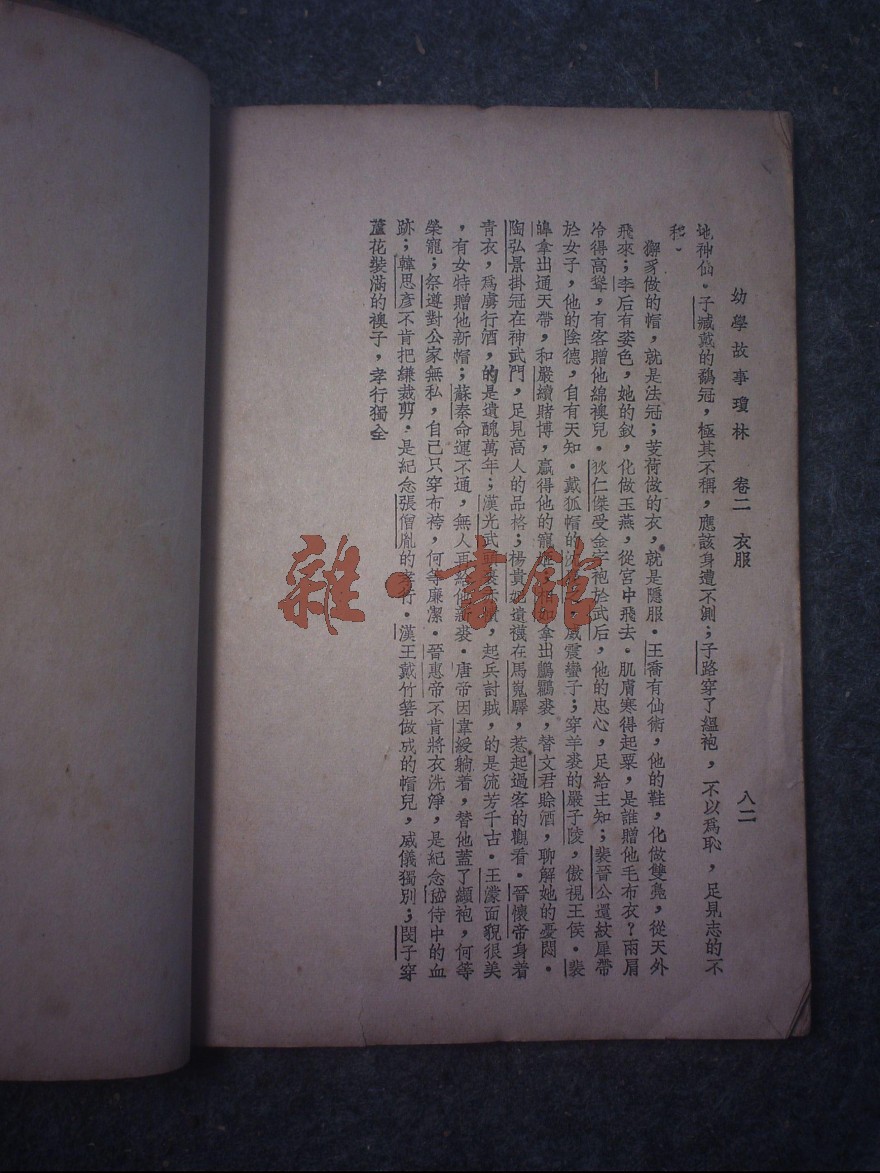 幼學故事瓊林　卷二　衣服　八二
地神仙。子臧戴的鷸冠，極其不稱，應該身遭不測；子路穿了縕袍，不以爲恥，足見志的不
移。
獬豸做的帽，就是法冠；芰荷做的衣，就是隱服。王喬有仙術，他的鞋，化做雙鳧，從天外
飛來；李后有姿色，她的釵，化做玉燕，從宮中飛去。肌膚寒得起粟，是誰贈他毛布衣？兩肩
冷得高聳，有客贈他綿襖兒。狄仁傑受金字袍於武后，他的忠心，足給主知；裴晉公還紋犀帶
於女子，他的陰德，自有天知。戴狐帽的，威震蠻子；穿羊裘的嚴子陵，傲視王侯。裴
皞拿出通天帶，和嚴續賭博，贏得他的寵拿出鷫鸘裘，替文君賒酒，聊解她的憂悶。
陶弘景掛冠在神武門，足見高人的品格；楊貴妃遺襪在馬嵬驛，惹起過客的觀看。晉懷帝身着
青衣，爲虜行酒，的是遺醜萬年；漢光武，起兵討賊，的是流芳千古。王濛面貌很美
，有女特贈他新帽；蘇秦命運不通，無人再裘。唐帝因韋綬躺着，替他蓋了纈袍，何等
榮寵；祭遵對公家無私，自己只穿布袴，何等廉潔。晉惠帝不肯將衣洗淨，是紀念嵇侍中的血
跡；韓思彥不肯把縑裁剪。是紀念張僧胤的孝行。漢王戴竹箬做成的帽兒，威儀獨別；閔子穿
蘆花裝滿的襖子，孝行獨全
雜・書館